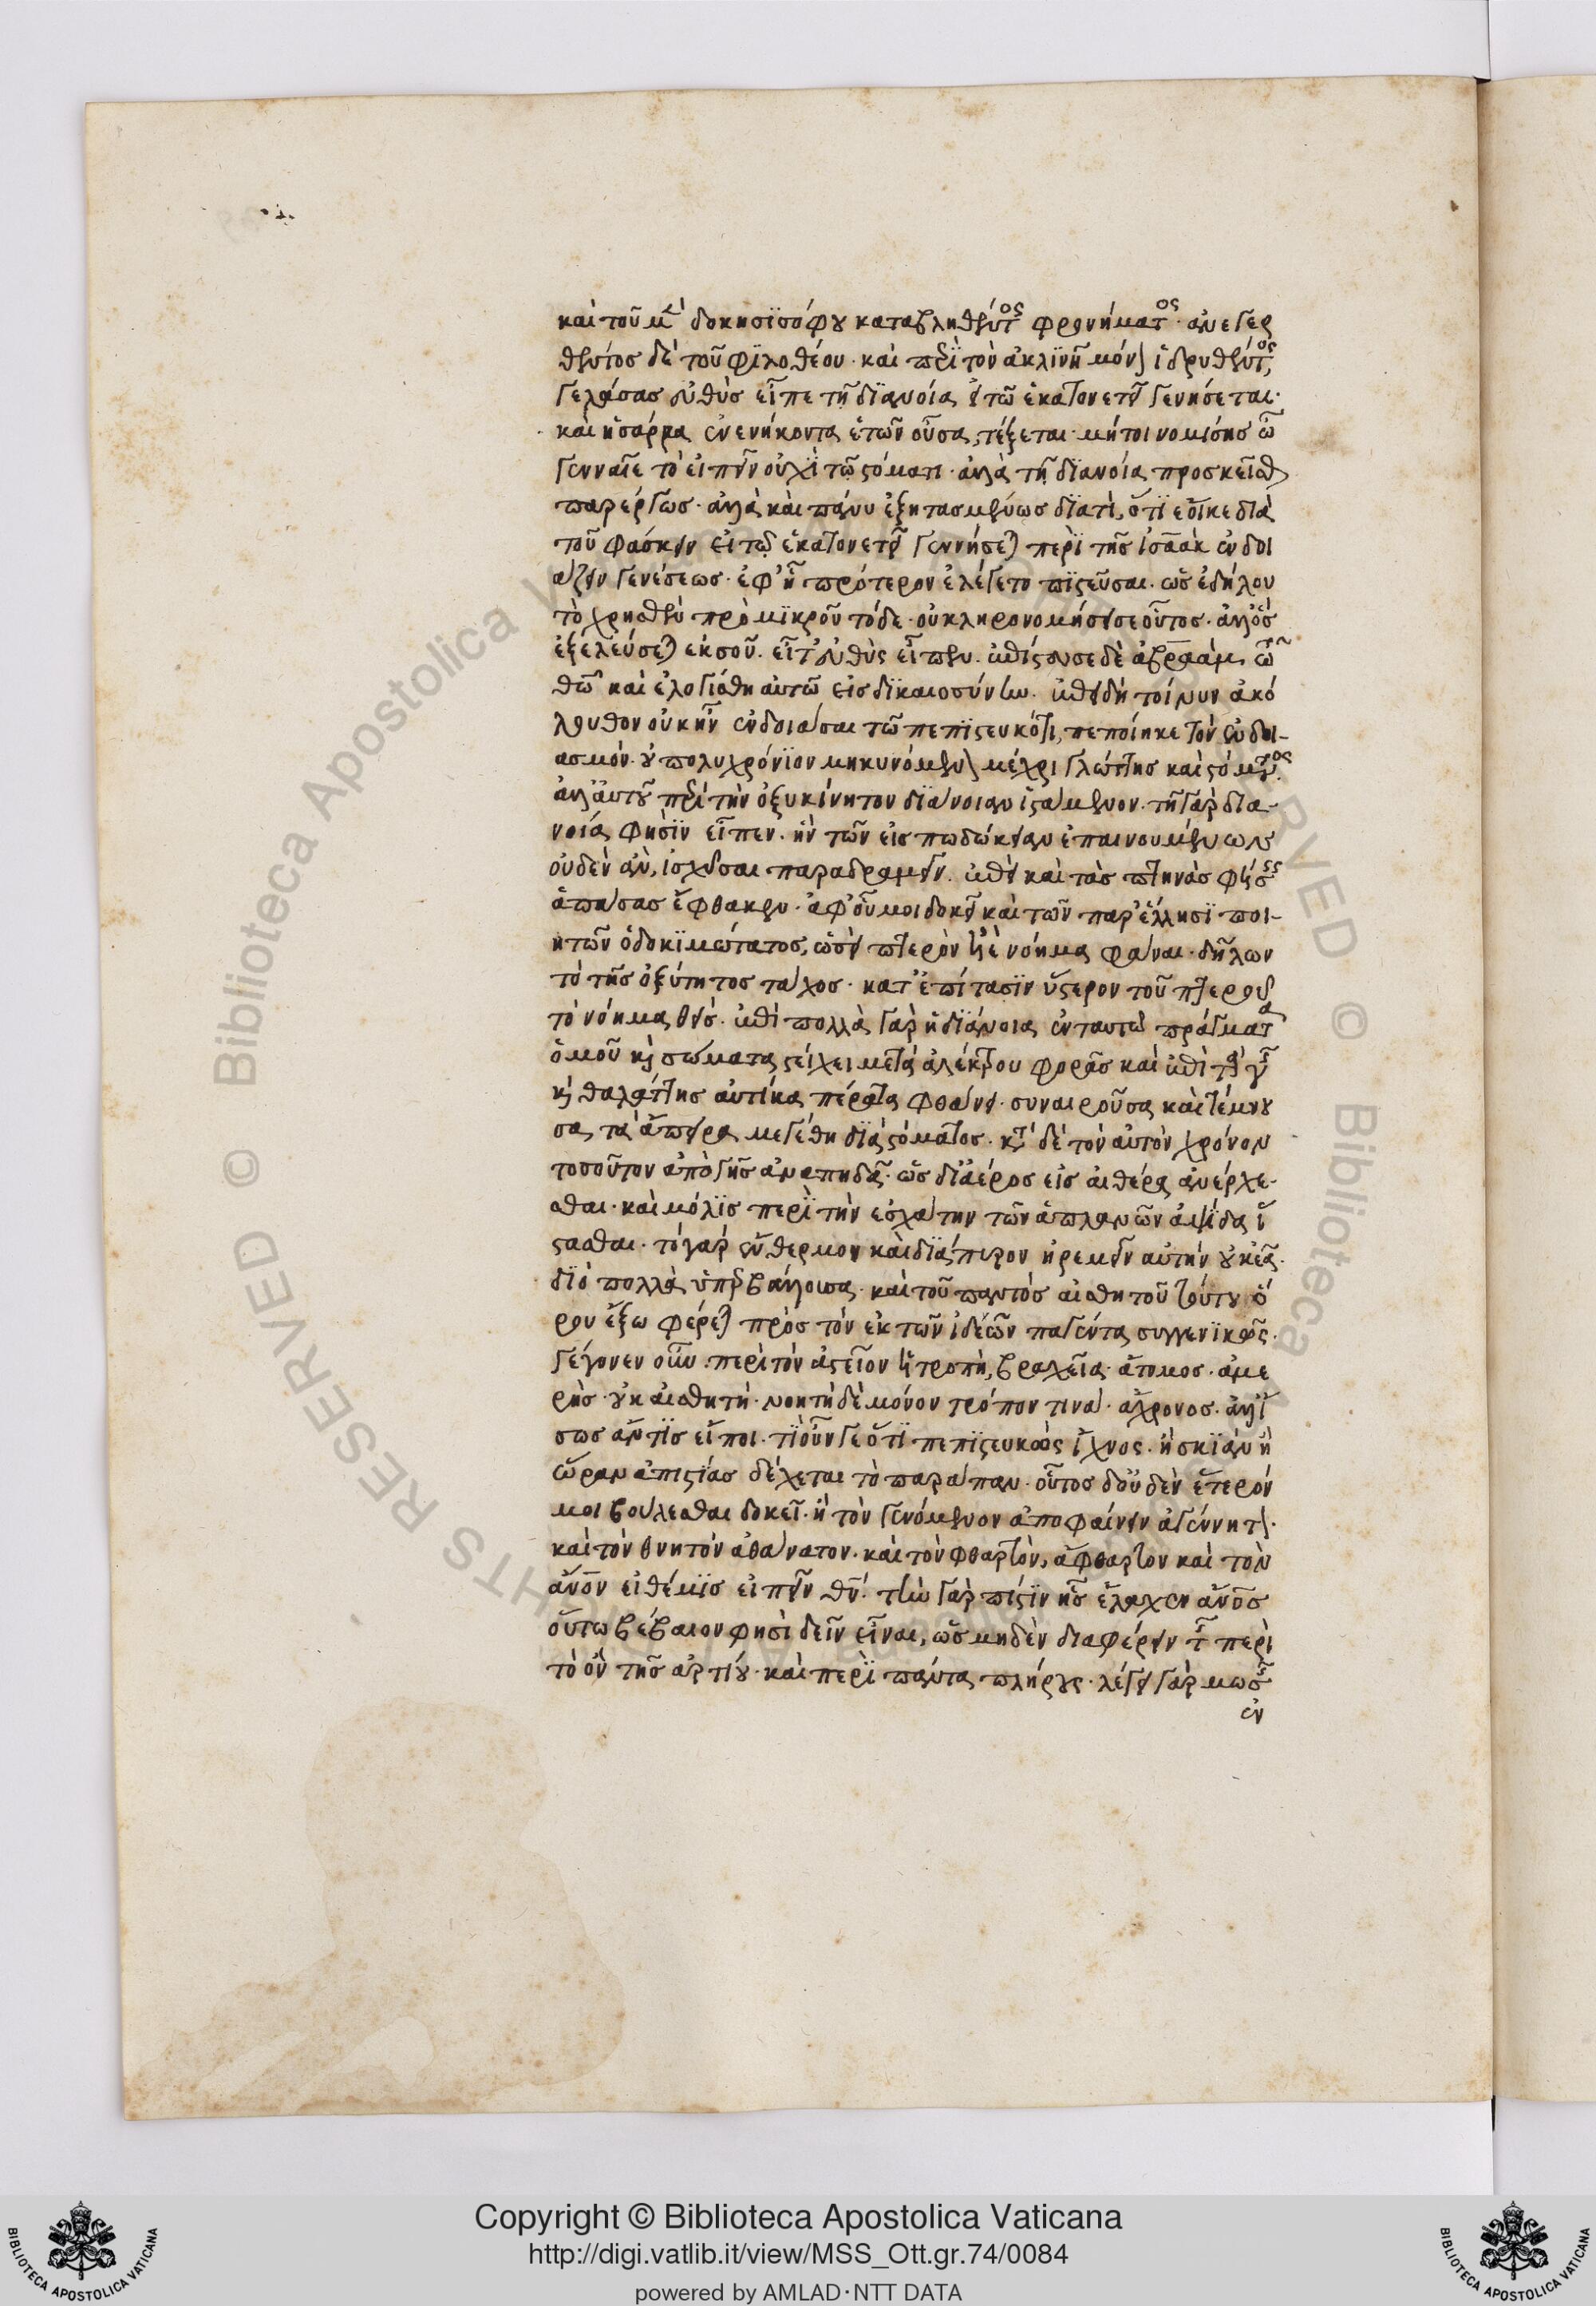 καὶ τοῦ μετὰ δοκησισόφου καταβληθέντος φρονήματος· ἀνεγερ
θέντος δὲ τοῦ φιλοθέου· καὶ περὶ τὸν ἀκλινῆ μόνον ἱδρυθέντος,
γελάσας εὐθὺς εἶπε τῇ διανοίᾳ εἰ τῷ ἑκατονετεῖ γενήσεται·
καὶ ἡ σάρρα ἐνενήκοντα ἐτῶν οὖσα, τέξεται· μήτοι νομίσῃς ὦ
γενναῖε τὸ εἰπεῖν οὐχὶ τῷ στόματι· ἀλλὰ τῇ διανοίᾳ προσκεῖσθαι
παρέργως· ἀλλὰ καὶ πάνυ ἐξητασμένως διατί, ὅτι ἔοικε διὰ
τοῦ φάσκειν εἰ τῷ ἑκατονετεῖ γεννήσεται περὶ τῆς ἰσαὰκ ἐνδοι
άζειν γενέσεως· ἐφ' ᾗ πρότερον ἐλέγετο πιστεῦσαι· ὡς ἐδήλου
τὸ χρησθὲν πρὸ μικροῦ τόδε· οὐ κληρονομήσει σε οὗτος· ἀλλ' ὃς
ἐξελεύσεται ἐκ σοῦ. εἶτ' εὐθὺς εἶπεν. ἐπίστευσε δὲ ἀβραὰμ τῷ
θεῷ καὶ ἐλογίσθη αὐτῷ εἰς δικαιοσύνην. ἐπειδὴ τοίνυν ἀκό
λουθον οὐκ ἦν ἐνδοιάσαι τῷ πεπιστευκότι, πεποίηκε τὸν ἐνδοι-
ασμόν· οὐ πολυχρόνιον μηκυνόμενον μέχρι γλώττης καὶ στόματος.
ἀλλ' αὐτοῦ περὶ τὴν ὀξυκίνητον διάνοιαν ἱστάμενον· τῇ γὰρ δια-
νοίᾳ φησὶν εἶπεν· ἣν τῶν εἰς ποδώκειαν ἐπαινουμένων
οὐδὲν ἂν, ἰσχῦσαι παραδραμεῖν. ἐπεὶ καὶ τὰς πτηνὰς φύσεις
ἁπάσας ἔφθακεν· ἀφ' οὗ μοι δοκεῖ καὶ τῶν παρ' ἕλλησι ποι-
ητῶν ὁ δοκιμώτατος, ὡσεὶ πτερὸν ἠὲ νόημα φάναι· δηλῶν
τὸ τῆς ὀξύτητος τάχος· κατ' ἐπίτασιν ὕστερον τοῦ πτεροῦ
τὸ νόημα θείς· ἐπὶ πολλὰ γὰρ ἡ διάνοια ἐν ταυτῷ πράγματα
ὁμοῦ καὶ σώματα στείχει μετὰ ἀλέκτου φορᾶς καὶ ἐπὶ τὰ γῆς
καὶ θαλάττης αὐτίκα πέρατα φθάνει· συναιροῦσα καὶ τέμνου
σα, τὰ ἄπειρα μεγέθη διαστόματος· κατὰ δὲ τὸν αὐτὸν χρόνον
τοσοῦτον ἀπὸ γῆς ἀναπηδᾷ· ὡς δι' ἀέρος εἰς αἰθέρα ἀνέρχε-
σθαι· καὶ μόλις περὶ τὴν ἐσχάτην τῶν ἀπλανῶν ἁψῖδα ἵ
στασθαι· τὸ γὰρ ἔνθερμον καὶ διάπυρον ἠρεμεῖν αὐτὴν οὐκ ἐᾷ·
διὸ πολλὰ ὑπερβάλλουσα· καὶ τοῦ παντὸς αἰσθητοῦ τούτου ὅ
ρου ἔξω φέρεται πρὸς τὸν ἐκ τῶν ἰδεῶν παγέντα συγγενικῶς·
γέγονεν οὖν περὶ τὸν ἀστεῖον ἡ τροπὴ, βραχεῖα· ἄτομος· ἀμε
ρής· οὐκ αἰσθητή· νοητὴ δὲ μόνον τρόπον τινά· ἄχρονος. ἀλλ' ἴ
σως ἄν τις εἴποι· τί οὖν γε ὅτι πεπιστευκὼς ἴχνος· ἢ σκιὰν ἢ
ὥραν ἀπιστίας δέχεται τὸ παράπαν· οὗτος δ' οὐδὲν ἕτερόν
μοι βούλεσθαι δοκεῖ· ἢ τὸν γενόμενον ἀποφαίνειν ἀγέννητον·
καὶ τὸν θνητὸν ἀθάνατον· καὶ τὸν φθαρτὸν, ἄφθαρτον καὶ τὸν
ἄνον εἰ θέμις εἰπεῖν θν. τὴν γὰρ πίστιν ἧς ἔλαχεν ἄνος
οὕτω βέβαιον φησὶ δεῖν εἶναι, ὡς μηδὲν διαφέρειν τῆς περὶ
τὸ ὂν τῆς ἀρτίου· καὶ περὶ πάντα πλήρους· λέγει γὰρ μωσῆς
ἐν
Copyright © Biblioteca Apostolica Vaticana
http://digi.vatlib.it/view/MSS_Ott.gr.74/0084
powered by AMLAD·NTT DATA